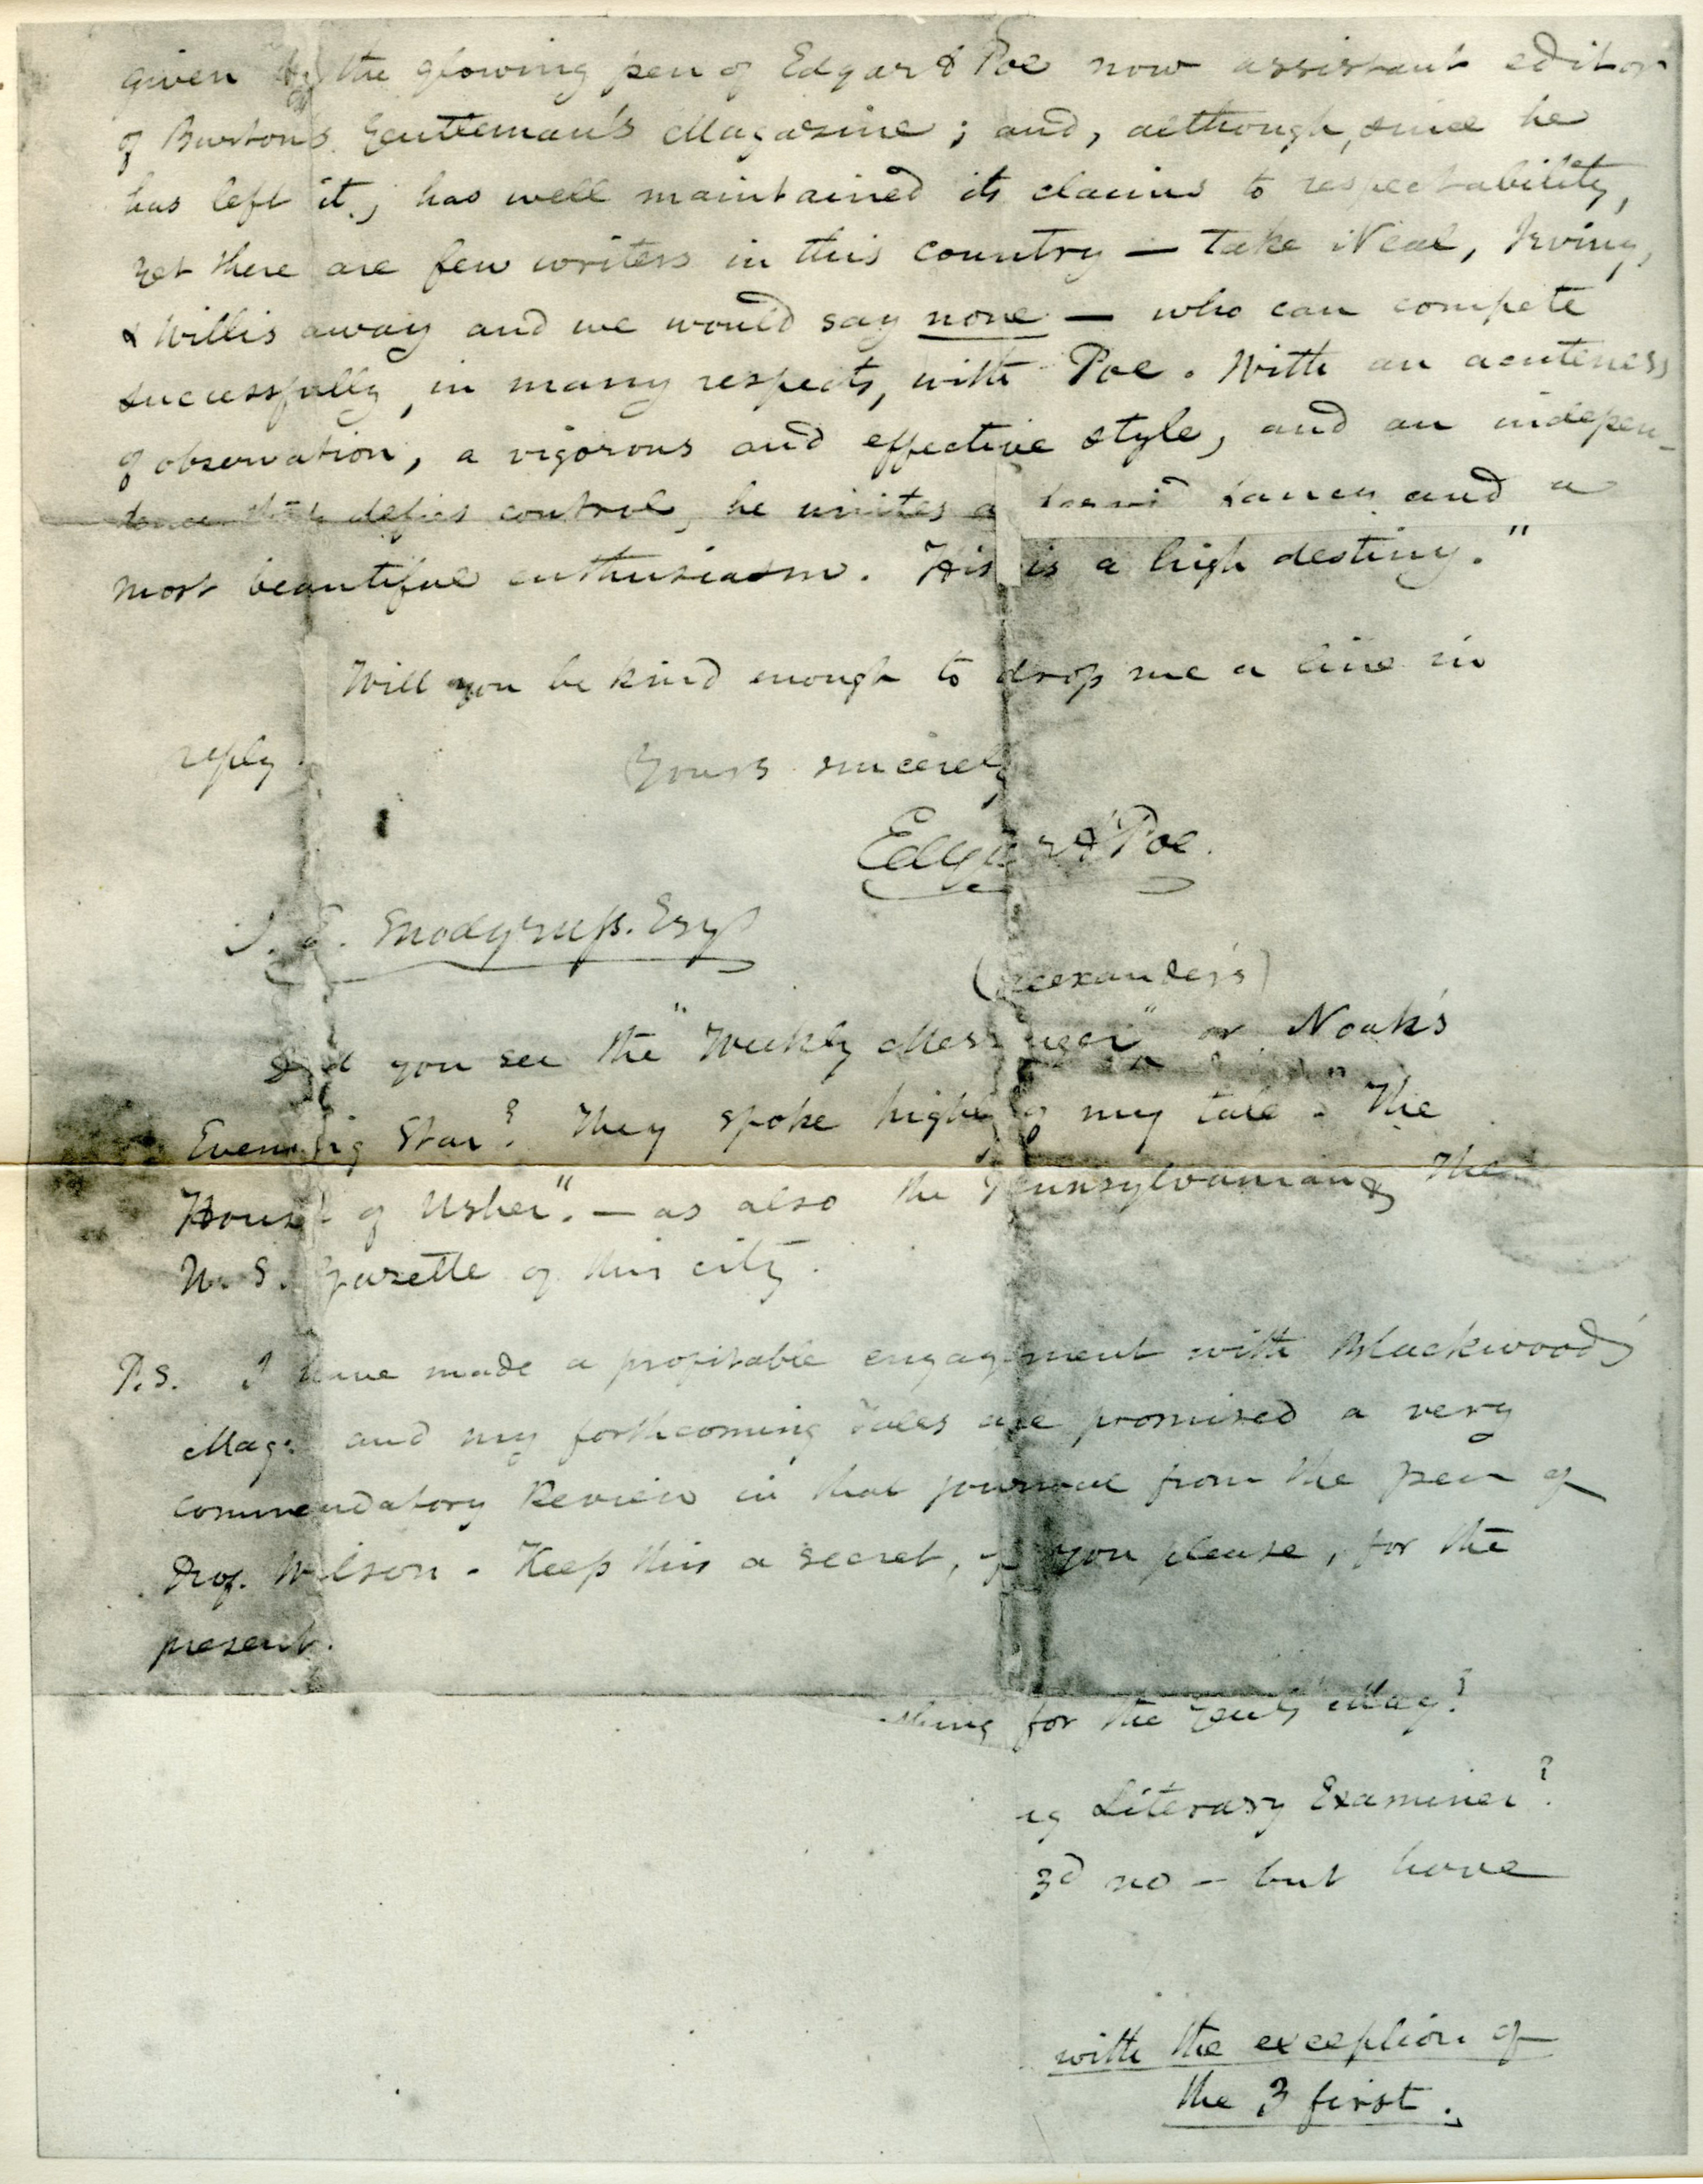 given by the glowing pen of Edgar A Poe now assistant editor
of Burton's Gentleman's Magazine; and, although, since he
has left it, has well maintained its claims to respectability,
yet there are few writers in this country — take Neal, Irving,
& Willis away and we would say none — who can compete
successfully, in many respects, with Poe. With an acuteness
of observation, a vigorous and effective style, and an indepen-
dence that defies control, he unites a fervid fancy and a
most beautiful enthusiasm. His is a high destiny."
Will you be kind enough to drop me a line in
reply.
Yours sincerely
Edgar A Poe.
J. E. Snodgrass. Esqr
(Alexander's)
Did you see the "Weekly Messenger" or Noah's
Evening Star? They spoke highly of my tale — "The
House of Usher". — as also the Pennsylvanian & The
U. S. Gazette of this city.
P.S. I have made a profitable engagement with Blackwoods'
Mag: and my forthcoming Tales are promised a very
commendatory Review in that journal from the pen of
Prof. Wilson. Keep this a secret, if you please, for the
present.
thing for the Gents' Mag?
Literary Examiner?
3d no — but have
with the exception of
the 3 first.